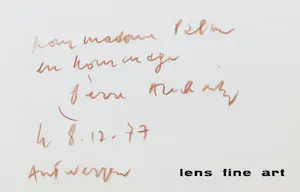 Pour madame
en hommage
Pierre
le 8.12.77
Antwerpen
lens fine art